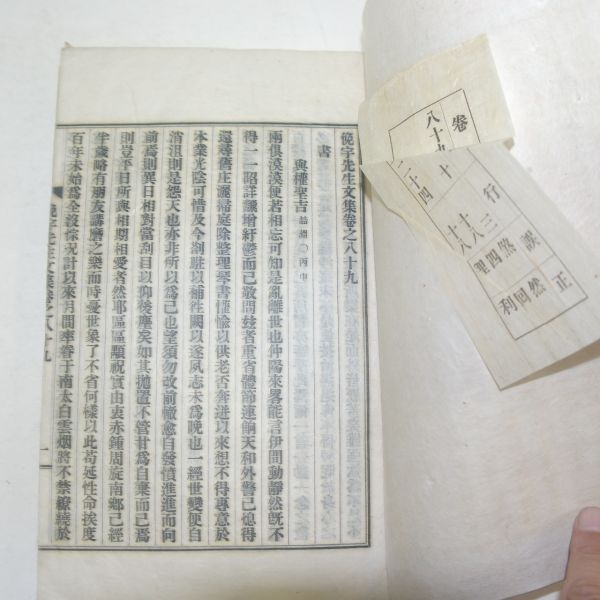 俛宇先生文集卷之八十九
書
與權聖吉 喆淵○丙申
兩俱漠漠便若相忘可知是亂離世也仲陽來畧能言伊間動靜然旣不
得一一昭詳議增紆鬱而已敬問玆者重省體節連餉天和外警已熄得
還尋舊庄灑掃庭除整理琴書懽愉以供老否奔迸以來想不得專意於
本業光陰可惜及今剤駐以補性闕以遂夙志未爲晩也一經世變便自
消沮則是怨天也亦非所以爲己也望須勿改前轍愈自發憤進進而向
前焉則異日相對當刮目以仰後塵矣如其拋置不管甘爲自棄而已焉
則豈平日所與相期相愛者然耶區區顒祝實由衷赤鍾周旋南鄕已經
半歲略有朋友講磨之樂而時憂世象了不省何樣以此苟延性命挨度
百年未始爲全沒保況計以來月間率眷于南太白雲烟將不禁繚繞於
俛宇先生文集卷之八十九
一
卷
八十九
十
二十四
行
三
十八
十八
誤
煞
四
聖
正
然
回
利